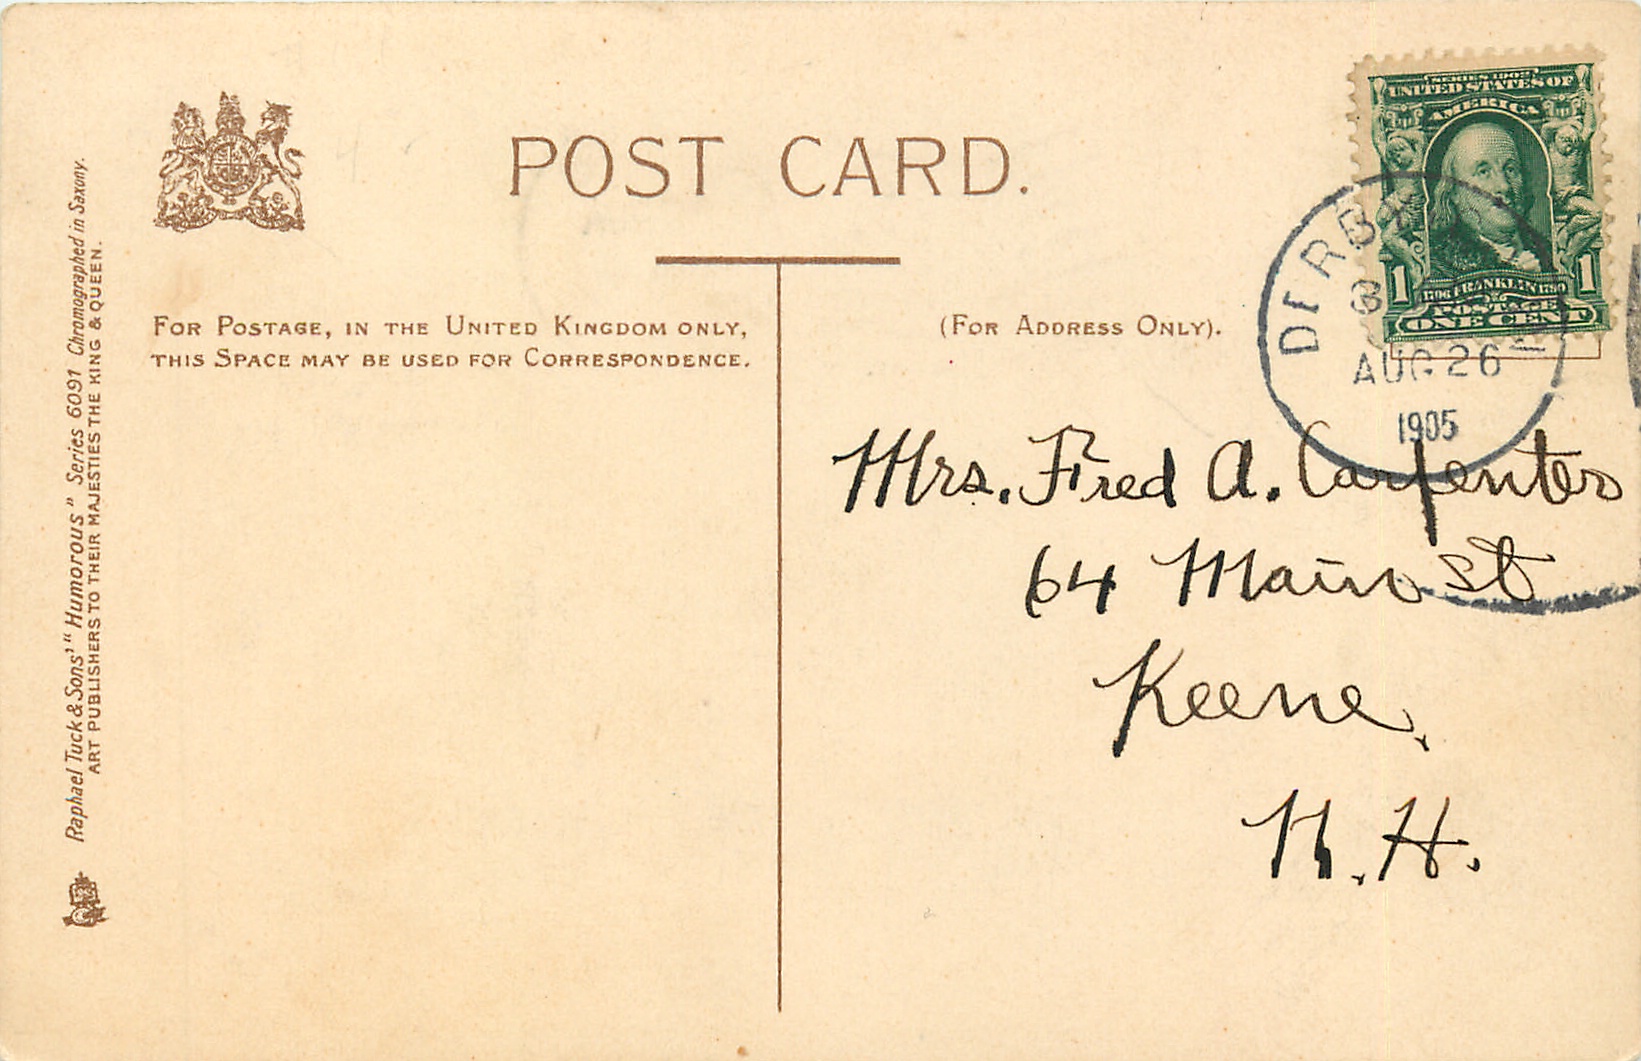 POST CARD.
FOR POSTAGE, IN THE UNITED KINGDOM ONLY,
THIS SPACE MAY BE USED FOR CORRESPONDENCE.
(FOR ADDRESS ONLY).
Raphael Tuck & Sons' "Humorous" Series 6091 Chromographed in Saxony.
ART PUBLISHERS TO THEIR MAJESTIES THE KING & QUEEN.
SERIES 1902
UNITED STATES OF
AMERICA
1 1
1706 FRANKLIN 1790
POSTAGE
ONE CENT
AUG 26
1905
Mrs. Fred A. Carpenter
64 Main St
Keene,
N. H.